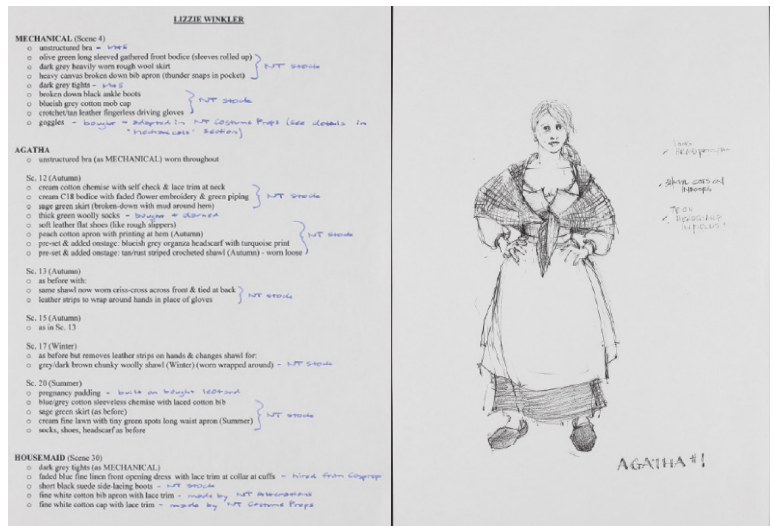 LIZZIE WINKLER
MECHANICAL (Scene 4)
o unstructured bra - M&S
o olive green long sleeved gathered front bodice (sleeves rolled up)
o dark grey heavily worn rough wool skirt
o heavy canvas broken down bib apron (thunder snaps in pocket)
NT stock
o dark grey tights - M&S
o broken down black ankle boots
o blueish grey cotton mob cap
o crotchet/tan leather fingerless driving gloves
NT stock
o goggles - bought + adapted in NT Costume Props (see details in
'Mechanicals' section)
AGATHA
o unstructured bra (as MECHANICAL) worn throughout
Sc. 12 (Autumn)
o cream cotton chemise with self check & lace trim at neck
o cream C18 bodice with faded flower embroidery & green piping
o sage green skirt (broken-down with mud around hem)
NT stock
o thick green woolly socks - bought + darned
o soft leather flat shoes (like rough slippers)
o peach cotton apron with printing at hem (Autumn)
o pre-set & added onstage: blueish grey organza headscarf with turquoise print
o pre-set & added onstage: tan/rust striped crocheted shawl (Autumn) - worn loose
NT stock
Sc. 13 (Autumn)
o as before with:
o same shawl now worn criss-cross across front & tied at back
o leather strips to wrap around hands in place of gloves
NT stock
Sc. 15 (Autumn)
o as in Sc. 13
Sc. 17 (Winter)
o as before but removes leather strips on hands & changes shawl for:
o grey/dark brown chunky woolly shawl (Winter) (worn wrapped around) - NT stock
Sc. 20 (Summer)
o pregnancy padding - built on bought leotard
o blue/grey cotton sleeveless chemise with laced cotton bib
o sage green skirt (as before)
o cream fine lawn with tiny green spots long waist apron (Summer)
NT stock
o socks, shoes, headscarf as before
HOUSEMAID (Scene 30)
o dark grey tights (as MECHANICAL)
o faded blue fine linen front opening dress with lace trim at collar at cuffs - hired from Cosprop
o short black suede side-lacing boots - NT stock
o fine white cotton bib apron with lace trim - made by NT Alterations
o fine white cotton cap with lace trim - made by NT Costume Props
AGATHA #1